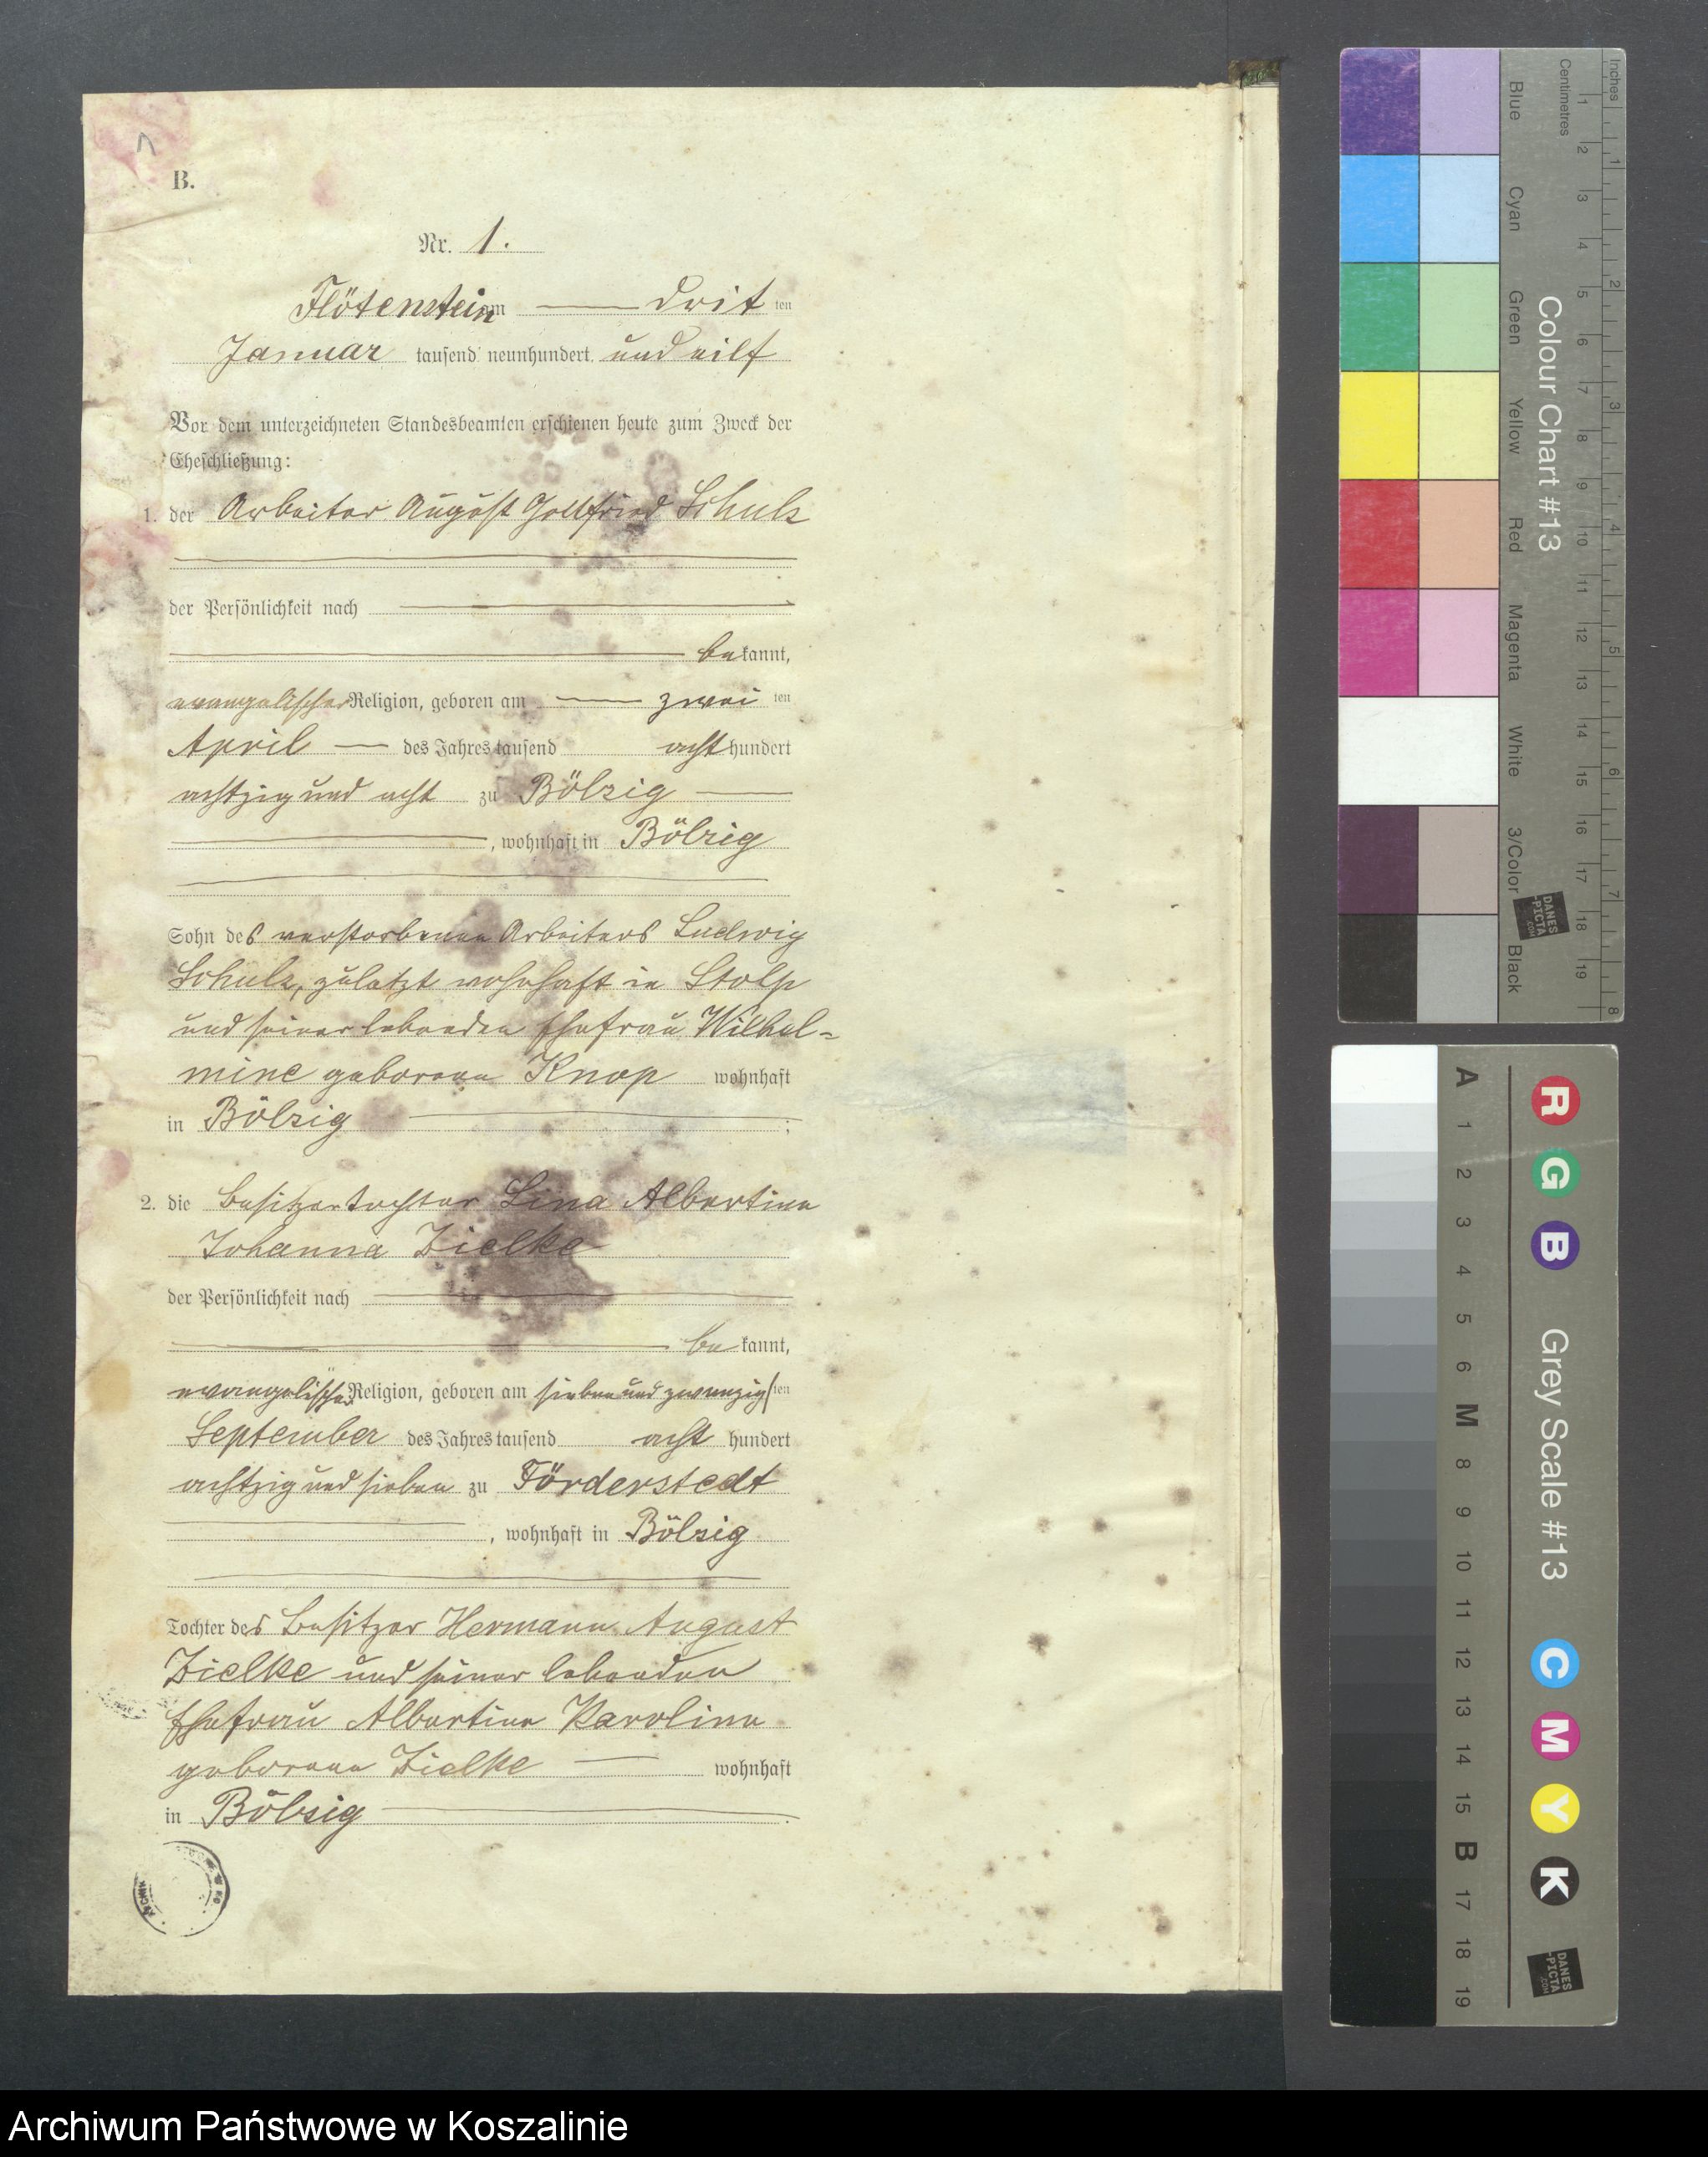 B.
Nr. 1.
Flötenstein am — drit ten
Januar tausend neunhundert und eilf
Vor dem unterzeichneten Standesbeamten erschienen heute zum Zweck der
Eheschließung:
1. der Arbeiter August Gottfried Schulz
der Persönlichkeit nach
be kannt,
evangelischer Religion, geboren am — zwei ten
April — des Jahres tausend acht hundert
achtzig und acht zu Bölzig —
, wohnhaft in Bölzig
Sohn des verstorbenen Arbeiters Ludwig
Schulz, zuletzt wohnhaft in Stolp
und seiner lebenden Ehefrau Wilhel=
mine geborene Knop wohnhaft
in Bölzig ;
2. die Besitzertochter Lina Albertine
Johanna Zielke
der Persönlichkeit nach
be kannt,
evangelischer Religion, geboren am sieben und zwanzigs ten
September des Jahres tausend acht hundert
achtzig und sieben zu Förderstedt
, wohnhaft in Bölzig
Tochter des Besitzer Hermann August
Zielke und seiner lebenden
Ehefrau Albertine Karoline
geborene Zielke — wohnhaft
in Bölzig .
Inches
Centimetres
1 2 3 4 5 6 7 8 9 10 11 12 13 14 15 16 17 18 19
1 2 3 4 5 6 7 8
Colour Chart #13
Blue
Cyan
Green
Yellow
Red
Magenta
White
3/Color
Black
DANES
-PICTA
.COM
A 1 2 3 4 5 6 M 8 9 10 11 12 13 14 15 B 17 18 19
R G B
Grey Scale #13
C M Y K
DANES
-PICTA
.COM
Archiwum Państwowe w Koszalinie